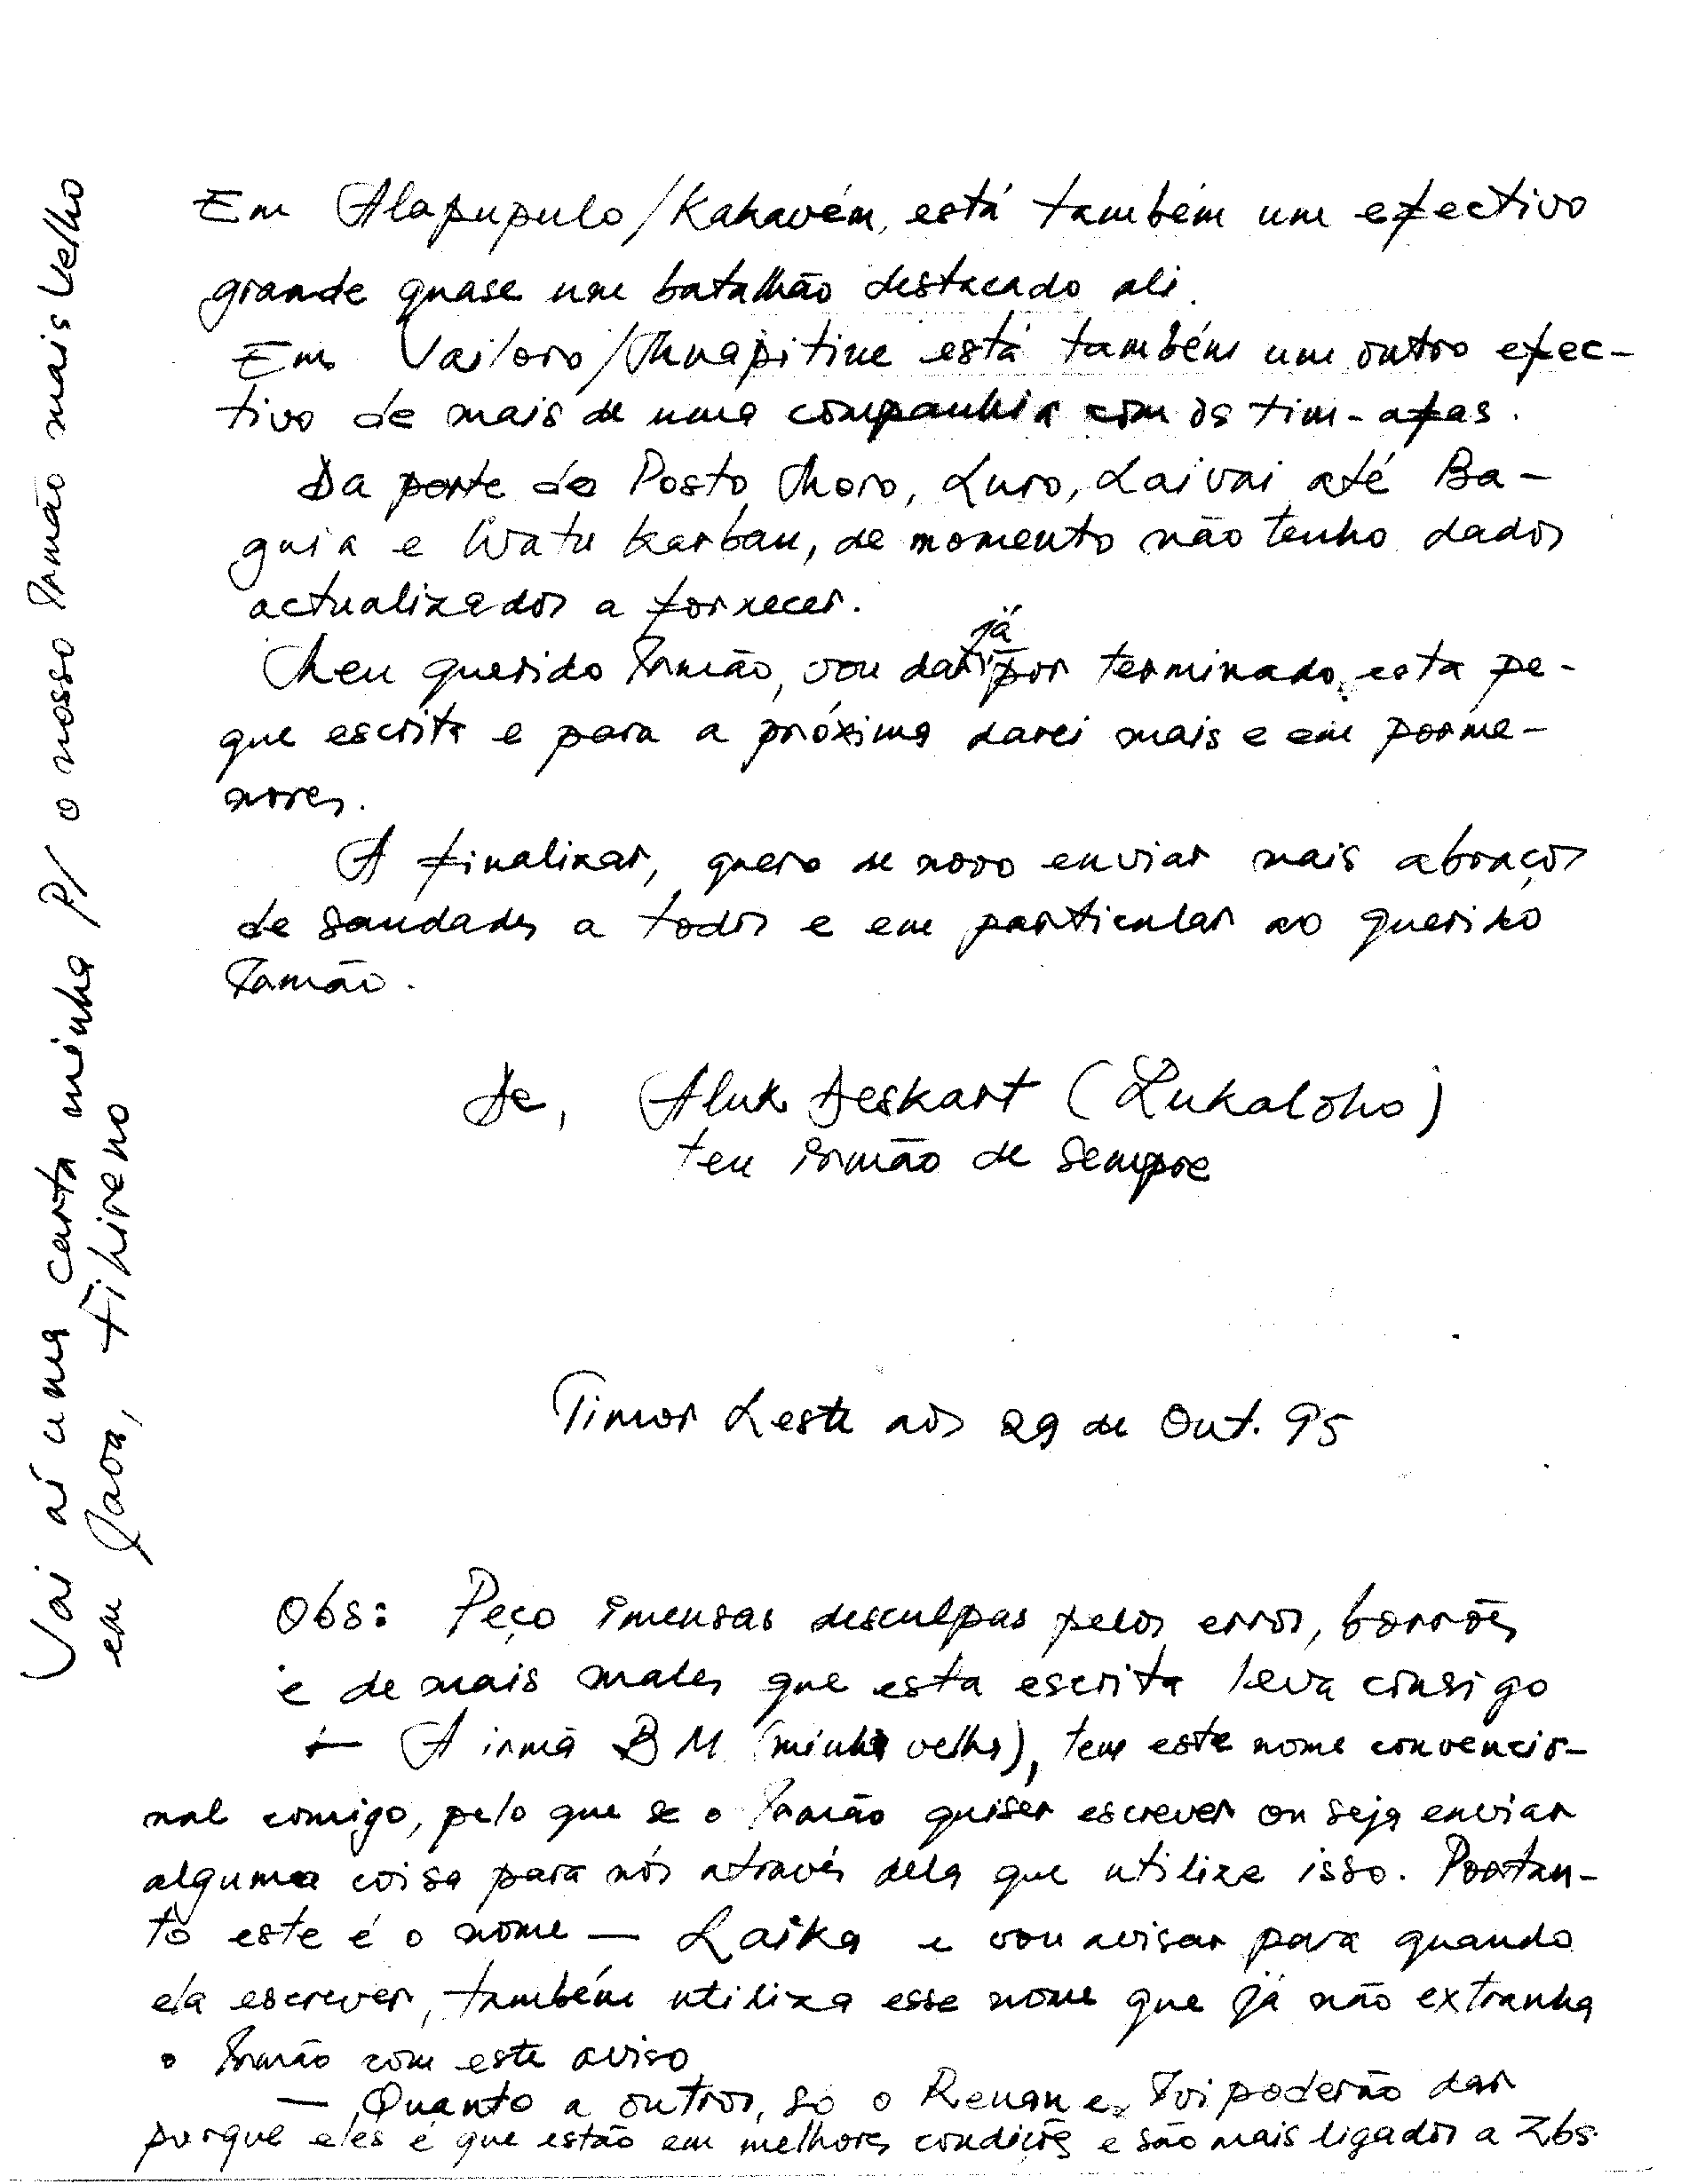 Em Alapupulo/Kakavém, está também um efectivo
grande quase um batalhão destacado ali.
Em Vailoro/Muapitine está também um outro efec-
tivo de mais de uma companhia com os tim-afas.
Da parte de Posto Moro, Luro, Laivai até Ba-
guia e Watu karbau, de momento não tenho dados
actualizados a fornecer.
Meu querido Irmão, vou dar já por terminado esta pe-
que escrita e para a próxima darei mais e em porme-
nores.
A finalizar, quero de novo enviar mais abraços
de saudades a todos e em particular ao querido
Irmão.
de, Aluk Deskart (Lukaloho)
teu irmão de sempre
Timor Leste aos 29 de Out. 95
Obs: Peço imensas desculpas pelos erros, borrões
e de mais males que esta escrita leva consigo
— A irmã BM (minha velha), tem este nome convencio-
nal comigo, pelo que se o Irmão quiser escrever ou seja enviar
alguma coisa para nós através dela que utilize isso. Portan-
to este é o nome — Laika e vou avisar para quando
ela escrever, também utiliza esse nome que já não extranha
o Irmão com este aviso
— Quanto a outros, só o Renan e poderão dar
porque eles é que estão em melhores condições e são mais ligados a Zbs.
Vai aí uma carta minha p/ o nosso Irmão mais Velho
em Java, Fihireno